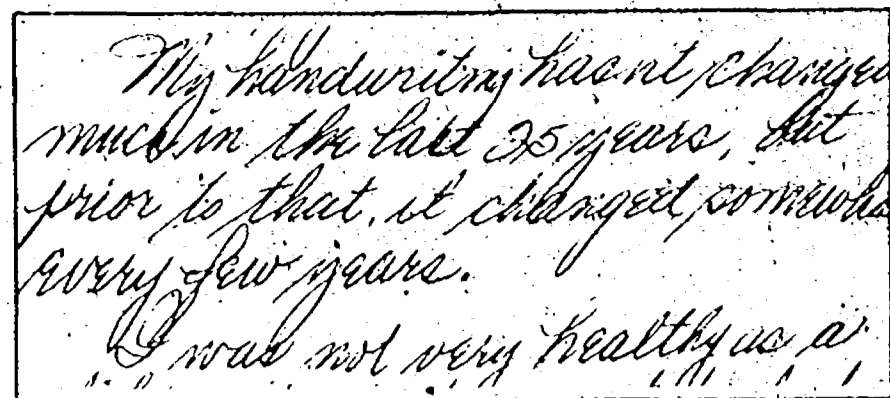 My handwriting hasnt changed
much in the last 25 years, but
prior to that, it changed somewha
every few years.
I was not very healthy as a